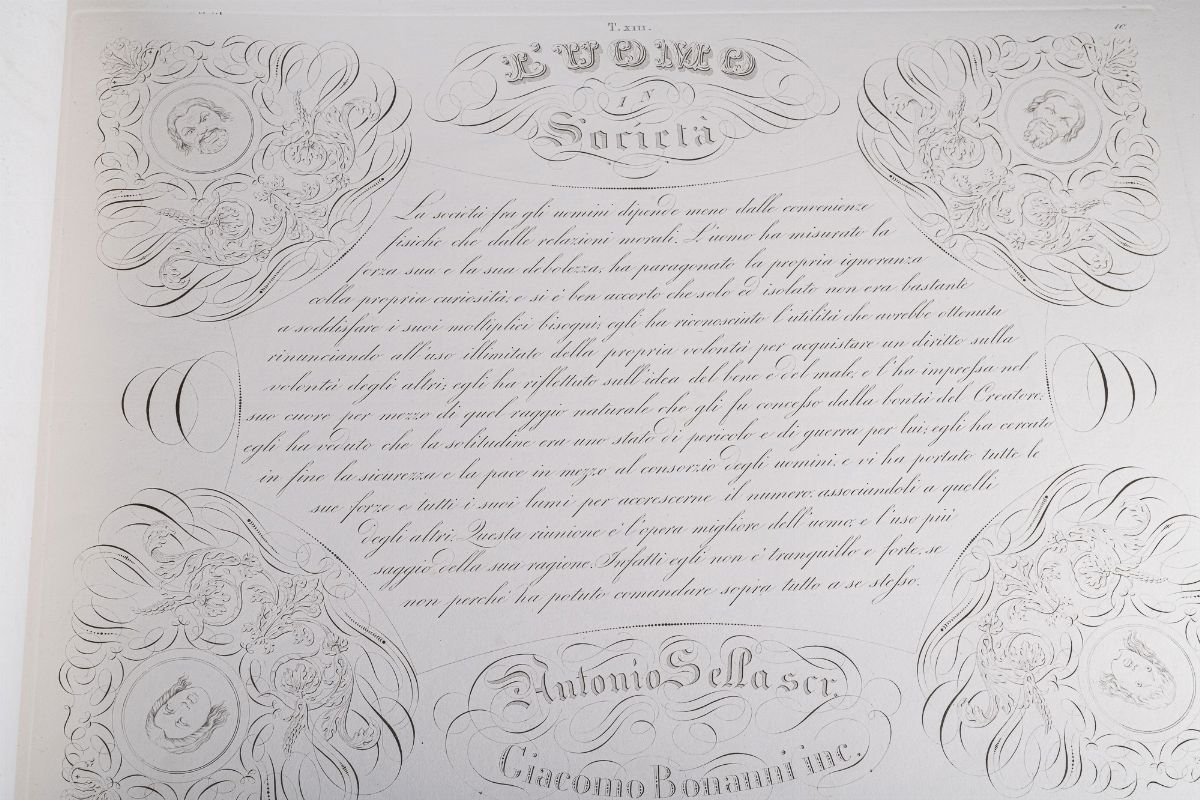 T. XIII.
10.
L'UOMO
IN
Società
La società fra gli uomini dipende meno dalle convenienze
fisiche che dalle relazioni morali. L'uomo ha misurato la
forza sua e la sua debolezza, ha paragonato la propria ignoranza
colla propria curiosità, e si è ben accorto che solo ed isolato non era bastante
a soddisfare i suoi moltiplici bisogni; egli ha riconosciuto l'utilità che avrebbe ottenuta
rinunciando all'uso illimitato della propria volontà per acquistare un diritto sulla
volontà degli altri; egli ha riflettuto sull'idea del bene e del male, e l'ha impressa nel
suo cuore per mezzo di quel raggio naturale che gli fu concesso dalla bontà del Creatore;
egli ha veduto che la solitudine era uno stato di pericolo e di guerra per lui; egli ha cercato
in fine la sicurezza e la pace in mezzo al consorzio degli uomini, e vi ha portato tutte le
sue forze e tutti i suoi lumi per accrescerne il numero, associandoli a quelli
degli altri. Questa riunione è l'opera migliore dell'uomo, e l'uso più
saggio della sua ragione. Infatti egli non è tranquillo e forte, se
non perchè ha potuto comandare sopra tutto a se stesso.
Antonio Sella scr.
Giacomo Bonanni inc.